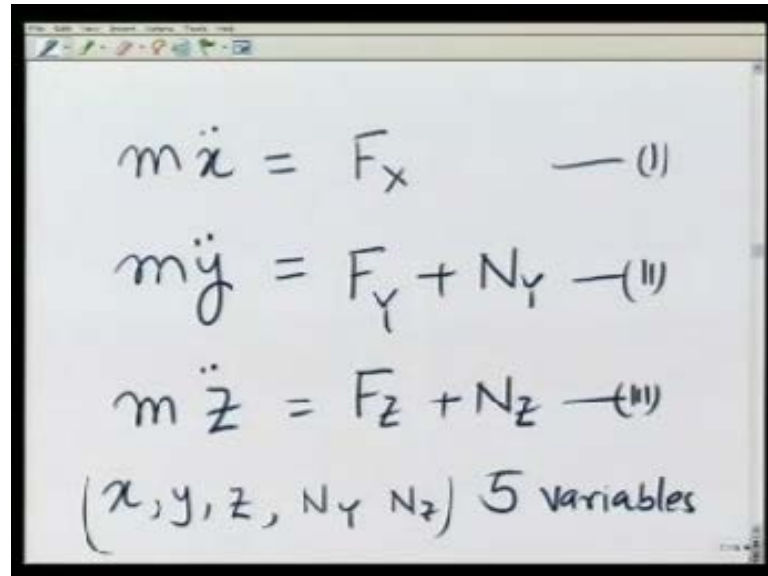 File Edit View Insert Actions Tools Help
mẍ = F_X —(I)
mÿ = F_Y + N_Y —(II)
m z̈ = F_Z + N_Z —(III)
(x, y, z, N_Y N_Z) 5 variables